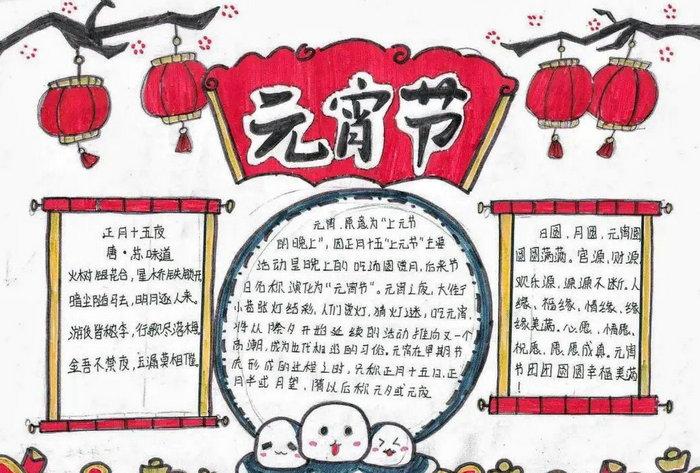 元宵节
正月十五夜
唐·苏味道
火树银花合,星桥铁锁开
暗尘随马去,明月逐人来。
游伎皆秾李,行歌尽落梅
金吾不禁夜,玉漏莫相催。
元宵,原意为“上元节
的晚上”,因正月十五“上元节”主要
活动是晚上的吃汤圆赏月,后来节
日名称演化为“元宵节”。元宵之夜,大街
小巷张灯结彩,人们赏灯,猜灯迷,吃元宵
将从除夕开始延续的活动推向又一个
高潮,成为世代相沿的习俗。元宵在早期节
庆形成的过程之时,只称正月十五日,正
月半或月望,隋以后称元夕或元夜
日圆,月圆,元宵圆
圆圆满满。官源,财源
观众源,源源不断。人
缘,福缘,情缘,缘
缘美满。心愿,情愿,
祝愿,愿愿成真。元宵
节团团圆圆幸福美满
!